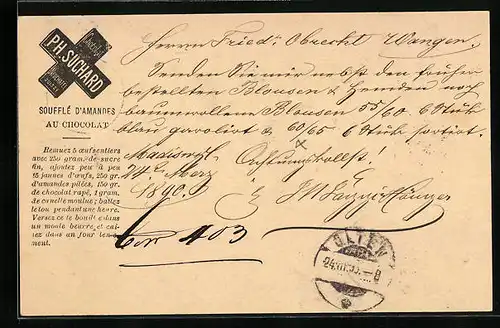 PH. SUCHARD
SOUFFLÉ D'AMANDES
AU CHOCOLAT
Remuez 5 œufs entiers
avec 250 gram. de sucre
fin, ajoutez peu à peu
15 jaunes d'œufs, 250 gr.
d'amandes pilées, 150 gr.
de chocolat rapé, 1 gram.
de canelle moulue; battez
le tou pendant une heure.
Versez ce te boulie dans
un moule beurré et cui-
sez dans un four lente-
ment.
Herrn Fried. Obrecht Wangen.
Senden Sie mir nebst den früher
bestellten Blousen & Hemden noch
baumwollene Blousen 55/60 6 Stük
blau & 60/65 6 Stük sortirt.
Madiswyl Achtungsvollst.
24 Merz
1890.
403
OLTEN
24.III.90. 8